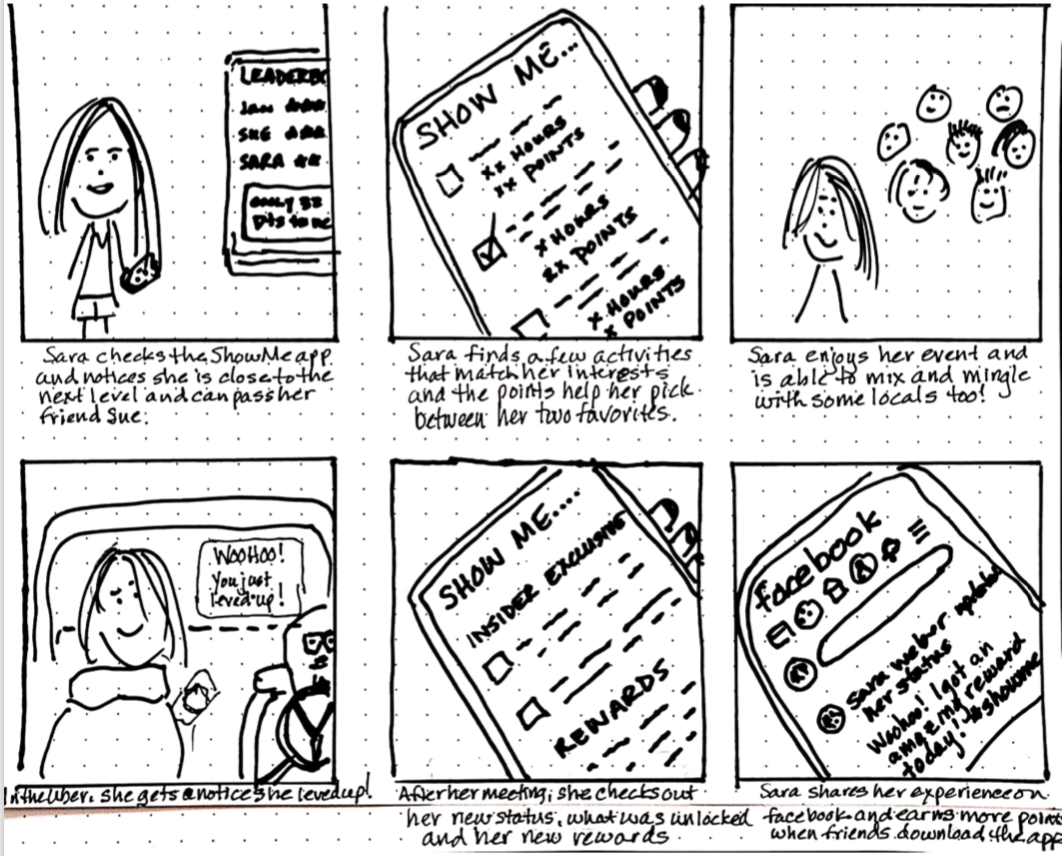 LEADERBO
Jan
SUE
SARA
only 33
Pts to ne
Sara checks the ShowMe app
and notices she is close to the
next level and can pass her
friend Sue.
SHOW ME...
XX HOURS
XX POINTS
X HOURS
XX POINTS
X HOURS
X POINTS
Sara finds a few activities
that match her interests
and the points help her pick
between her two favorites.
Sara enjoys her event and
is able to mix and mingle
with some locals too!
WooHoo!
You just
leveled up!
In the Uber, she gets a notice she leveled up!
SHOW ME....
INSIDER EXCLUSIVE
REWARDS
After her meeting, she checks out
her new status, what was unlocked
and her new rewards.
facebook
Sara Weber updated
her status
Woohoo! I got an
amazing reward
today! #showme
Sara shares her experience on
facebook and earns more points
when friends download the app